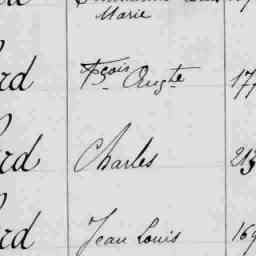 Marie
rd Fçois Augte 177
rd Charles 213
rd Jean Louis 169